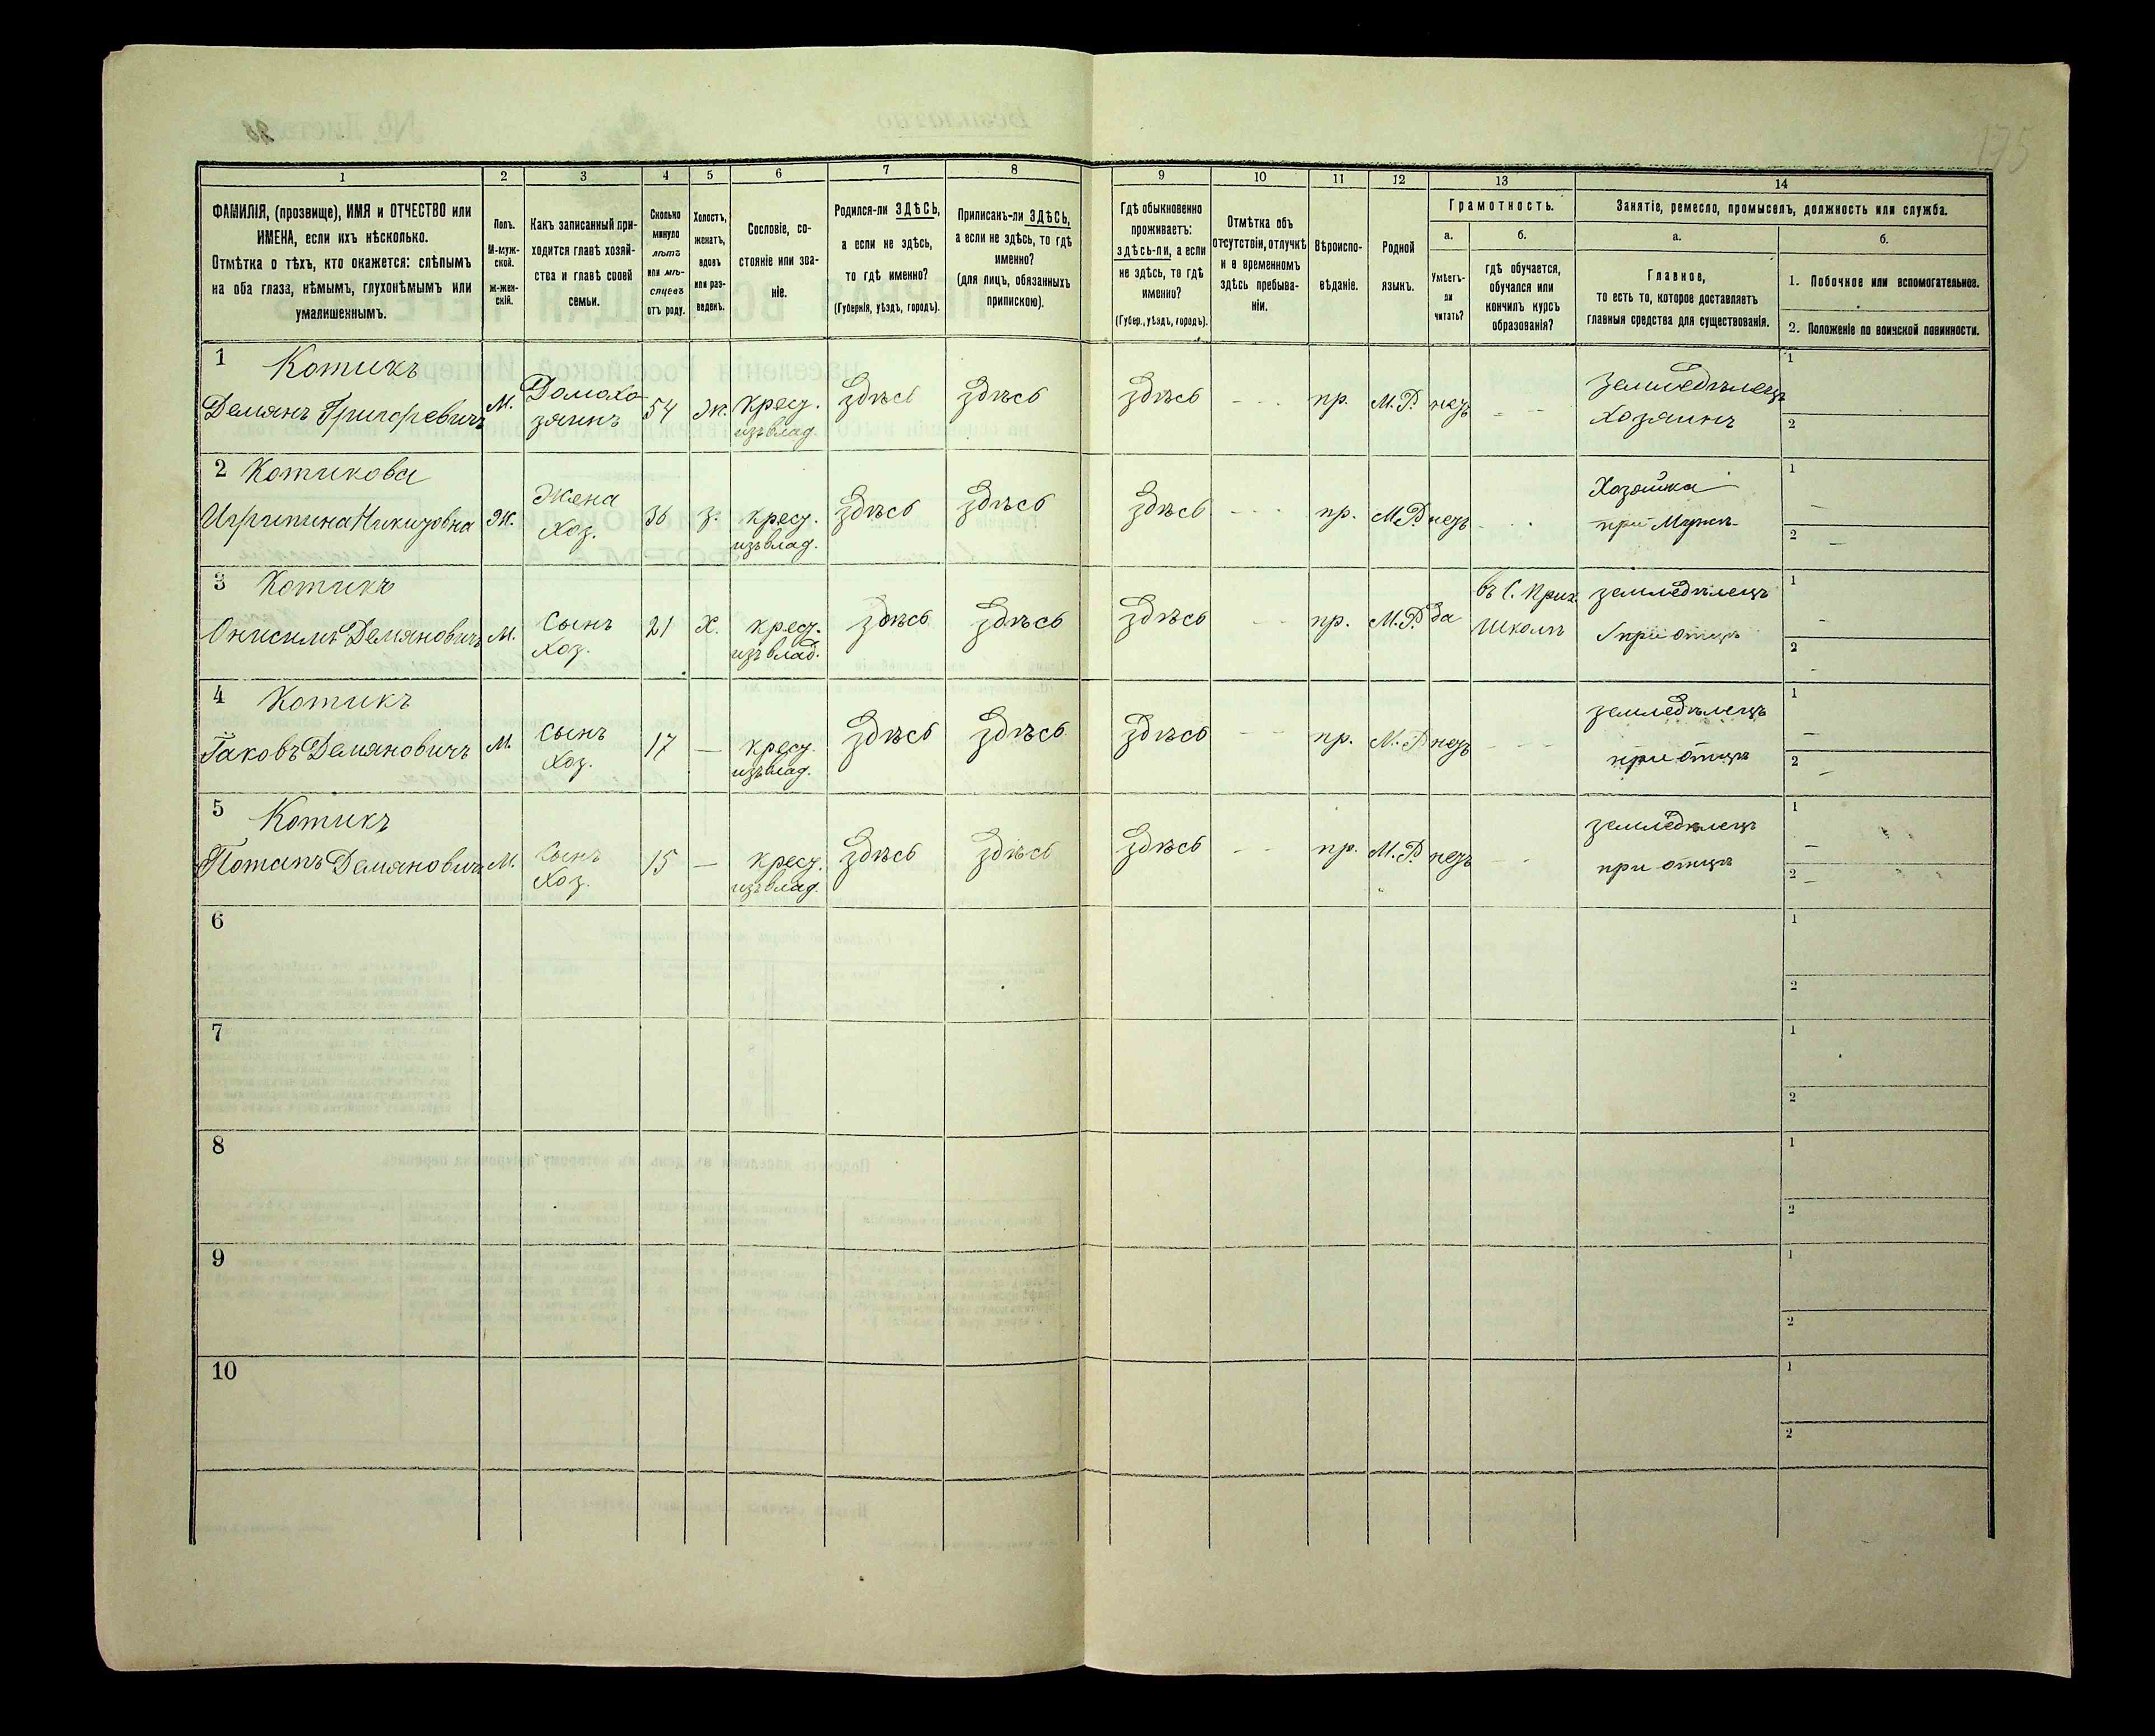 175
1
2
3
4
5
6
7
8
9
10
11
12
13
14
ФАМИЛІЯ, (прозвище), ИМЯ и ОТЧЕСТВО или
ИМЕНА, если ихъ нѣсколько.
Отмѣтка о тѣхъ, кто окажется: слѣпымъ
на оба глаза, нѣмымъ, глухонѣмымъ или
умалишеннымъ.
Полъ.
М-муж-
ской.
ж-жен-
скій.
Какъ записанный при-
ходится главѣ хозяй-
ства и главѣ своей
семьи.
Сколько
минуло
лѣтъ
или мѣ-
сяцевъ
отъ роду.
Холостъ,
женатъ,
вдовъ
или раз-
веденъ.
Сословіе, со-
стояніе или зва-
ніе.
Родился-ли ЗДѢСЬ,
а если не здѣсь,
то гдѣ именно?
(Губернія, уѣздъ, городъ).
Приписанъ-ли ЗДѢСЬ,
а если не здѣсь, то гдѣ
именно?
(для лицъ, обязанныхъ
припискою).
Гдѣ обыкновенно
проживаетъ:
здѣсь-ли, а если
не здѣсь, то гдѣ
именно?
(Губер., уѣздъ, городъ).
Отмѣтка объ
отсутствіи, отлучкѣ
и о временномъ
здѣсь пребыва-
ніи.
Вѣроиспо-
вѣданіе.
Родной
языкъ.
Грамотность.
а.
Умѣетъ-
ли
читать?
б.
гдѣ обучается,
обучался или
кончилъ курсъ
образованія?
Занятіе, ремесло, промыселъ, должность или служба.
а.
Главное,
то есть то, которое доставляетъ
главныя средства для существованія.
б.
1. Побочное или вспомогательное.
2. Положеніе по воинской повинности.
1 Котикъ
Демянъ Григоревичъ
М.
Домохо
зяинъ
54
Ж.
крес.
изъ влад.
здѣсь
здѣсь
здѣсь
- - -
пр.
М.Р.
нетъ
- -
земледѣлецъ
хозяинъ
1
2
2 Котикова
Никитовна
Ж.
Жена
Хоз.
36
з.
крес.
изъ влад.
здѣсь
здѣсь
здѣсь
- - -
пр.
М.Р.
нетъ
Хозяйка
при
1
2
3 Котикъ
Онисимъ Демяновичъ
М.
Сынъ
Хоз.
21
Х.
крес.
изъ влад.
здѣсь
здѣсь
здѣсь
- -
пр.
М.Р.
да
въ С. Прих.
Школѣ
земледѣлецъ
при отцѣ
1
2
4 Котикъ
Іаковъ Демяновичъ
М.
сынъ
Хоз.
17
—
крес.
изъ влад.
здѣсь
здѣсь
здѣсь
- -
пр.
М.Р.
нетъ
- - -
земледѣлецъ
при отцѣ
1
2
5 Котикъ
Потапъ Демяновичъ
М.
Сынъ
Хоз.
15
—
крес.
изъ влад.
здѣсь
здѣсь
здѣсь
- -
пр.
М.Р.
нетъ
- -
земледѣлецъ
при отцѣ
1
2
6
1
2
7
1
2
8
1
2
9
1
2
10
1
2